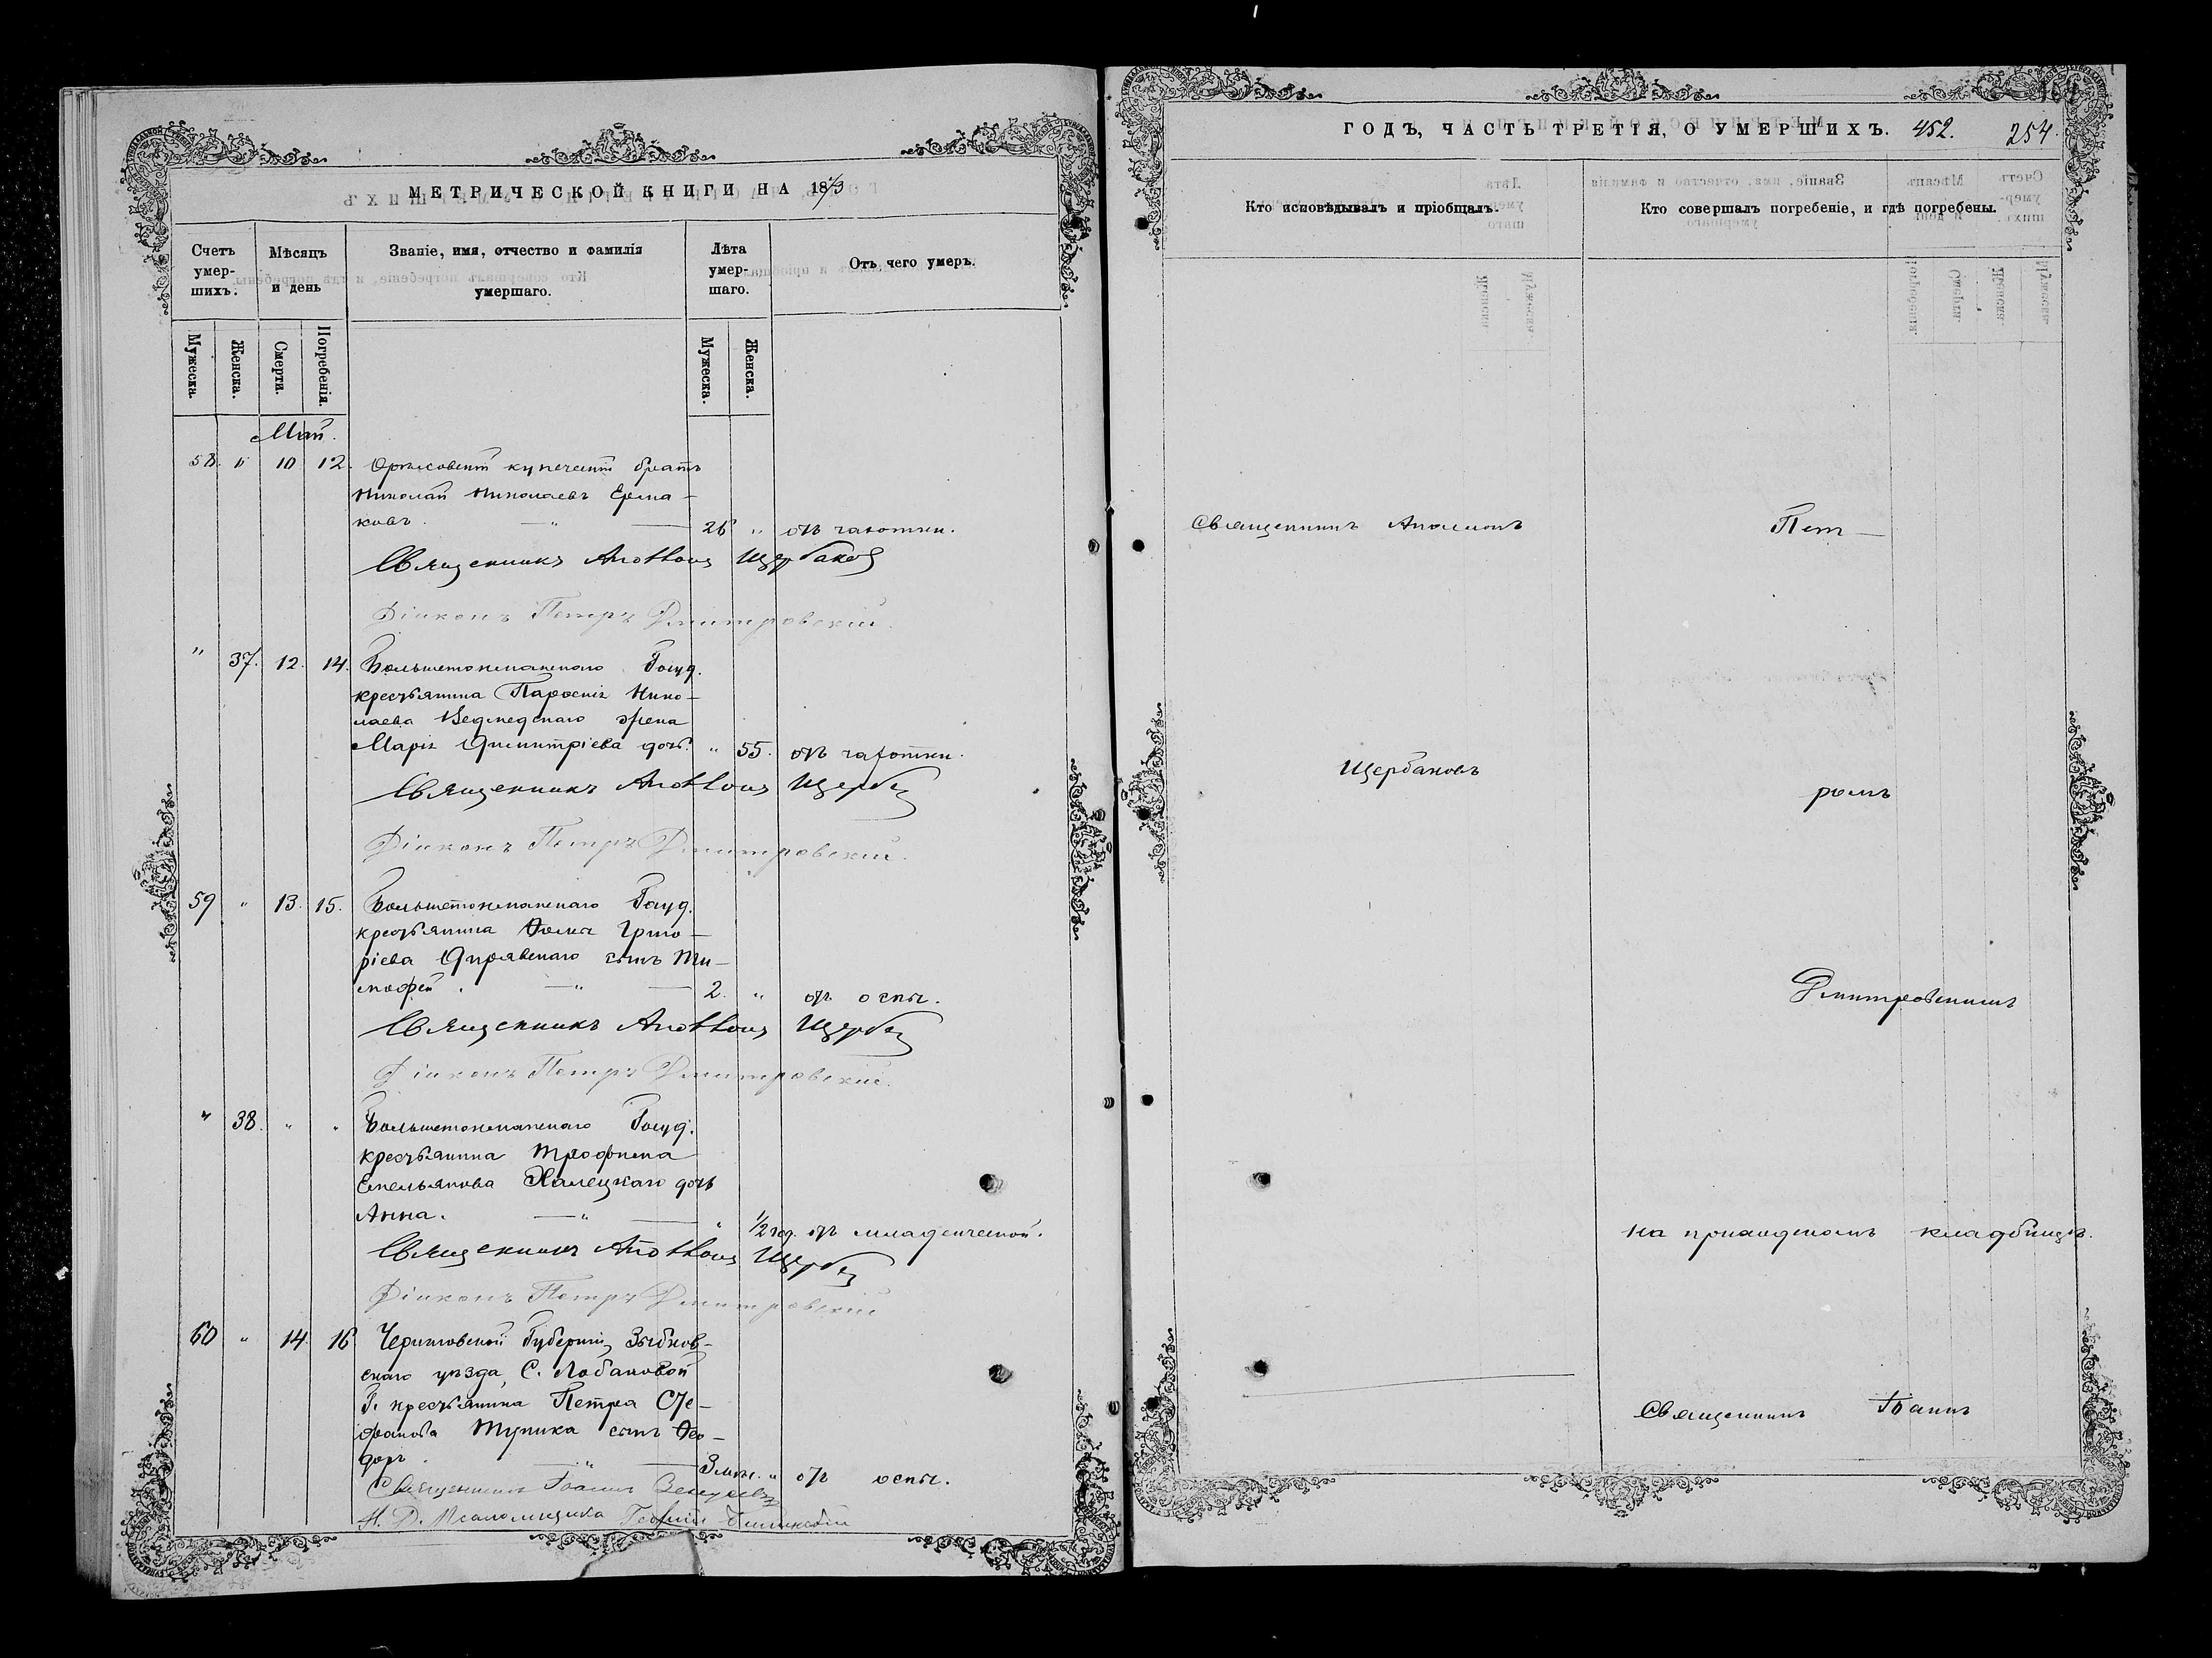 МЕТРИЧЕСКОЙ КНИГИ НА 18
Счетъ умер-шихъ.
Мѣсяцъ и день
Званіе, имя, отчество и фамилія умершаго.
Лѣта умер-шаго.
Отъ чего умеръ.
Мужеска.
Женска.
Смерти.
Погребенія.
Мужеска.
Женска.
Май.
58. " 10 12. купеческій братъ
Николай Николаевъ Ерма-
ковъ. — " — 26 " отъ чахотки.
Священникъ Аполлонъ Щербаков
Діаконъ Петръ Дмитровскій.
" 37. 12. 14. Большетокмакскаго Госуд.
крестьянина Нико-
лаева жена
Марія Димитріева дочь. " 55. отъ чахотки.
Священникъ Аполлонъ Щерба
Діаконъ Петръ Дмитровскій.
59 " 13. 15. Большетокмакскаго Госуд.
крестьянина Ѳома Григо-
ріева сынъ Ти-
моѳей. — " — 2. " отъ оспы.
Священникъ Аполлонъ Щерба
Діаконъ Петръ Дмитровскій.
" 38. " " Большетокмакскаго Госуд.
крестьянина Трофима
Емельянова Халецкаго дочь
Анна. — " — " 1/2 год. отъ младенческой.
Священникъ Аполлонъ Щерба
Діаконъ Петръ Дмитровскій
60 " 14. 16 Черниговской Губерніи,
скаго уѣзда, С. Лобановой
Г. крестьянина Петра Сте-
фанова Тупика сынъ Ѳео-
доръ. — " — 3 мѣс. " отъ оспы.
Священникъ Іоаннъ
И. Д. Псаломщика Георгій
ГОДЪ, ЧАСТЬ ТРЕТІЯ, О УМЕРШИХЪ. 452. 254.
Кто исповѣдывалъ и пріобщалъ.
Кто совершалъ погребеніе, и гдѣ погребены.
Священникъ Аполлонъ
Пет-
Щербаковъ
ромъ
Дмитровскимъ
на приходскомъ кладбищѣ.
Священникъ Іоаннъ